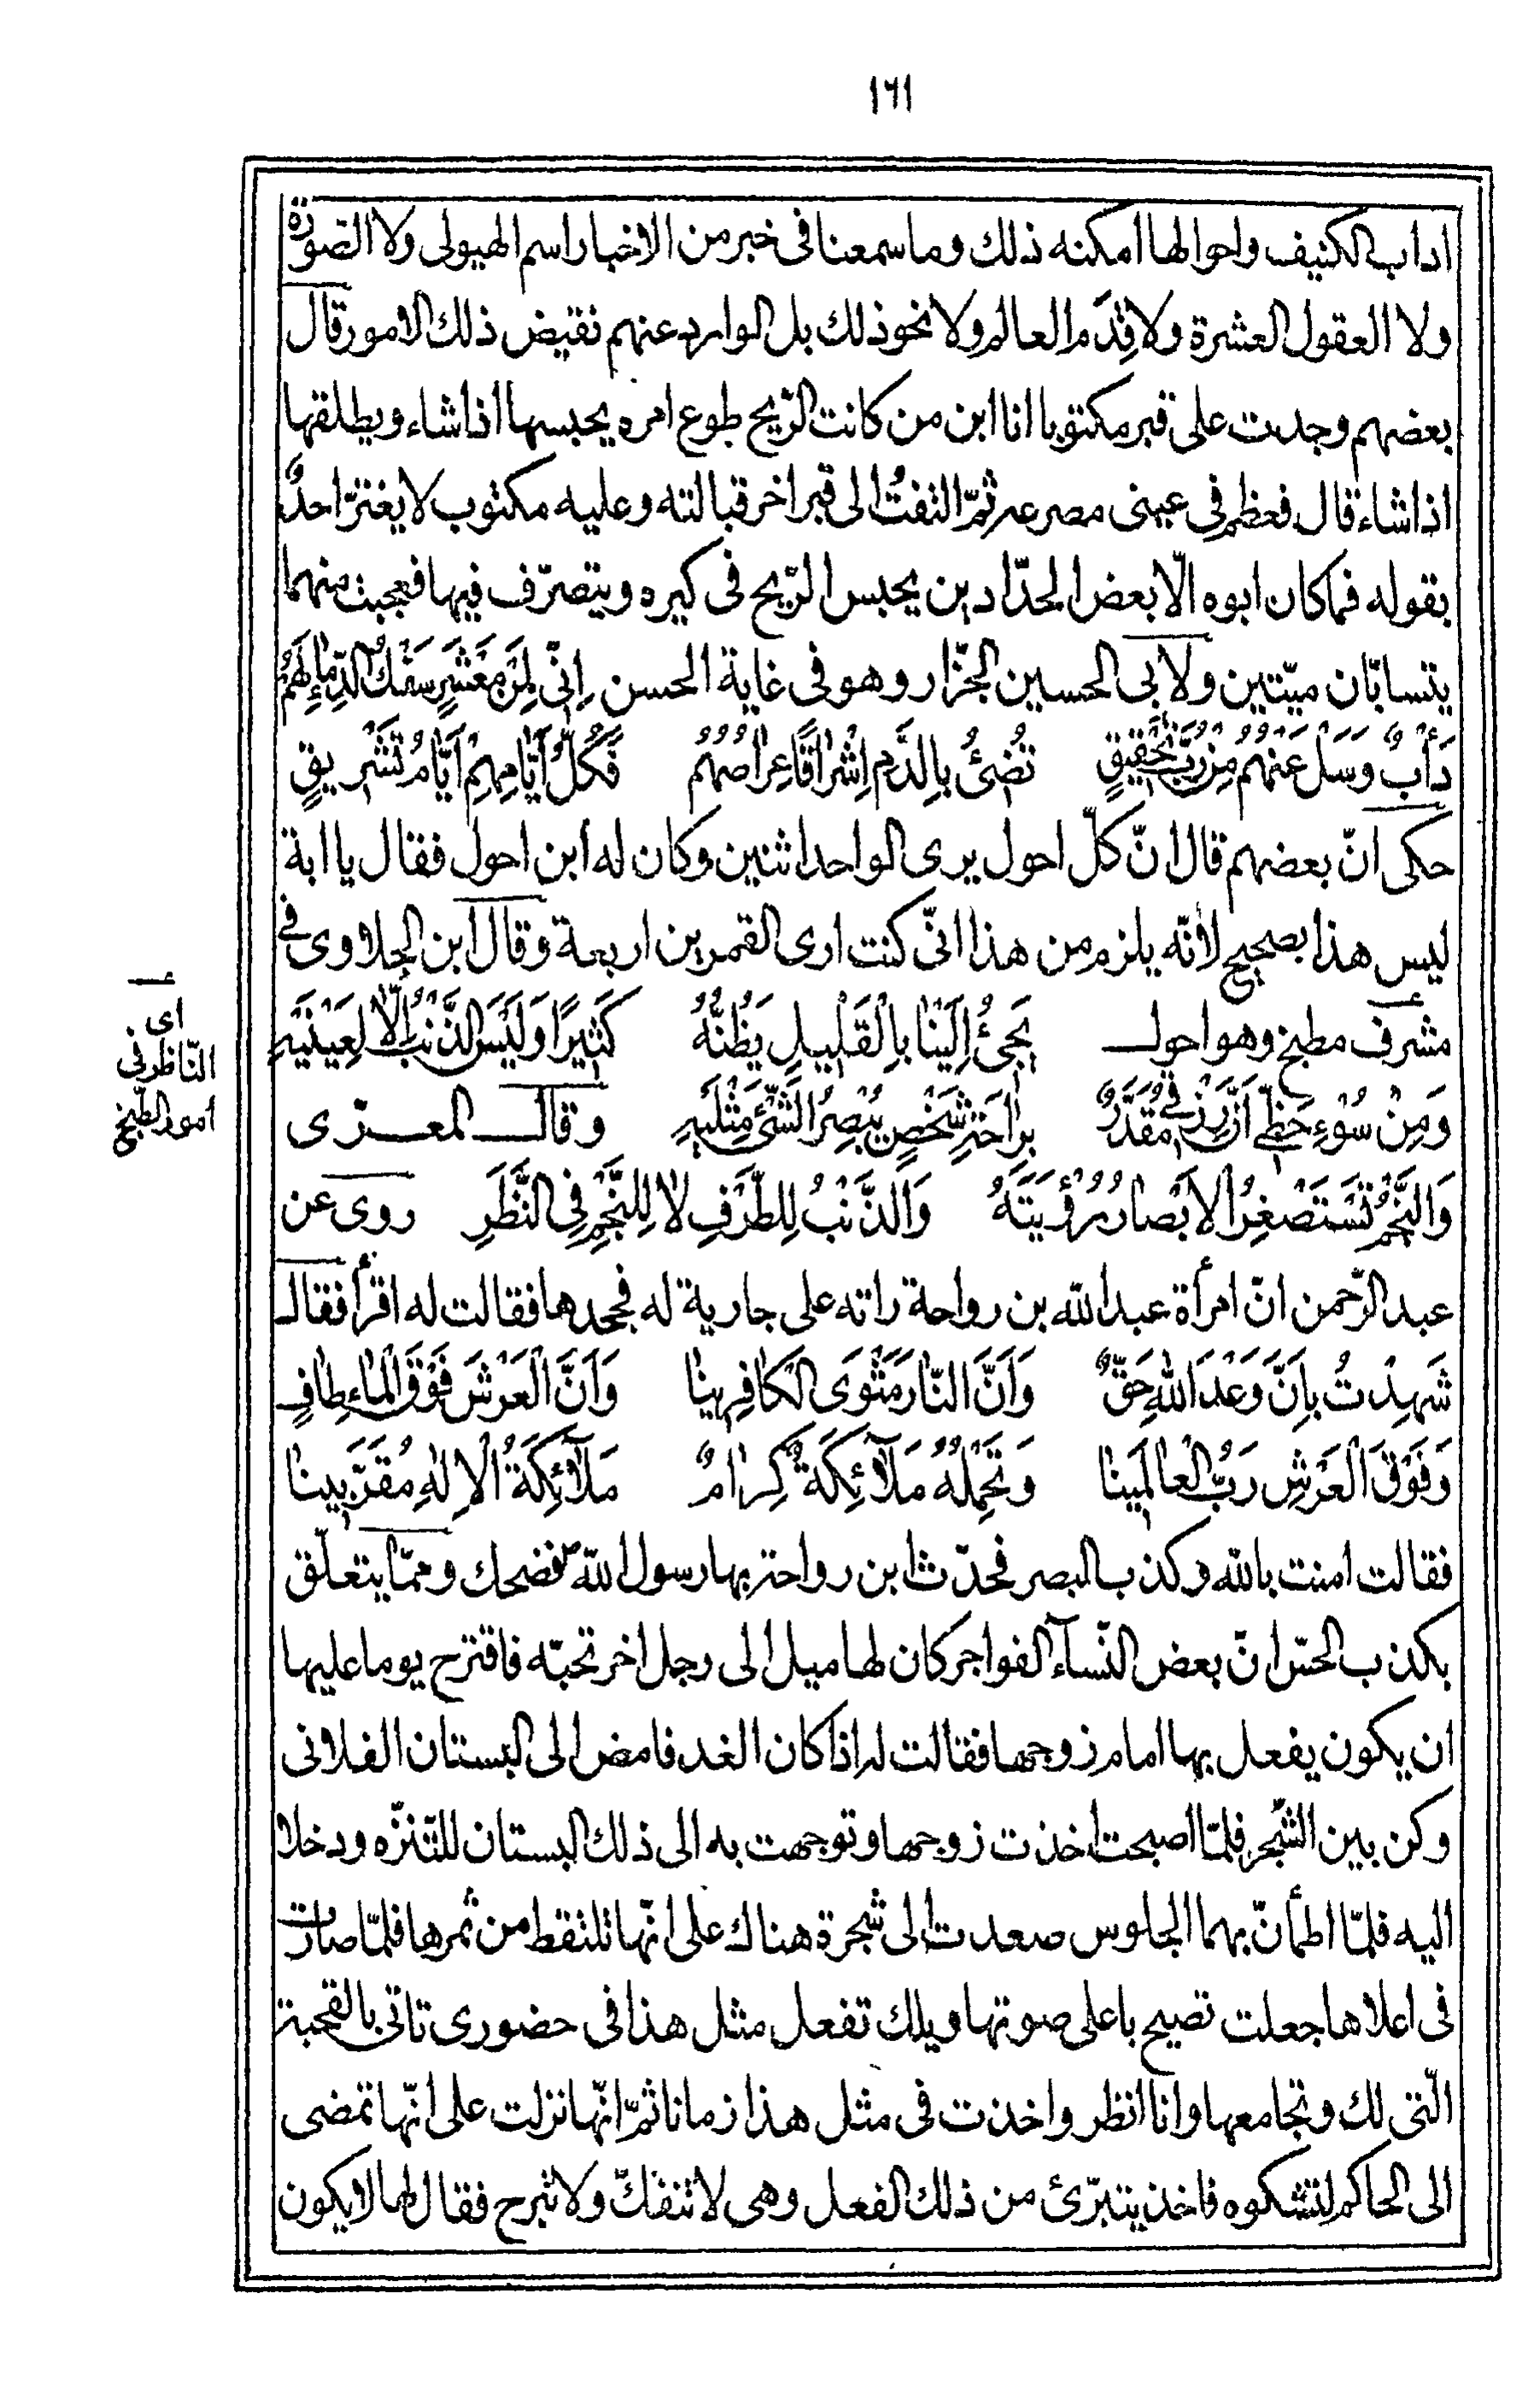 ١٦١
اداب الكنيف واحوالها امكنه ذلك وما سمعنا فى خبر من الاخبار اسم الهيولى ولا الصورة
ولا العقول العشرة ولا قِدَم العالم ولا نحو ذلك بل الوارد عنهم نقيض ذلك الامور قال
بعضهم وجدت على قبر مكتوبا انا ابن من كانت الرّيح طوع امره يحبسها اذا شاء ويطلقها
اذا شاء قال فعظم فى عينى مصرعه ثمّ التفتُّ الى قبر اخر قبالته وعليه مكتوب لا يغترّ احدٌ
بقوله فما كان ابوه الّا بعض الحدّادين يحبس الرّيح فى كيره ويتصرّف فيها فعجبت منهما
يتسابّان ميّتين ولابى الحسين الجزّار وهو فى غاية الحسن اِنّى لَمِنْ مَعْشَرٍ سَفْكُ الدِّمٰاءِ لَهُمْ
دَأْبٌ وَسَلْ عَنْهُمُ مِنْ رُبَّ تَحْقيقٍ تُضىئُ بِالدَّمِ اِشْراقًا عِراصُهُمُ فَكُلُّ اَيّٰامِهِمْ اَيّٰامُ تَشْريقٍ
حكى انّ بعضهم قال انّ كلّ احول يرى الواحد اثنين وكان له ابن احول فقال يا ابة
ليس هذا بصحيح لانّه يلزم من هذا انّى كنت ارى القمرين اربعة وقال ابن الجلاوى فى
مشرف مطبخ وهو احول يَجىئُ اِلَيْنٰا بِالْقَليلِ يَظُنُّهُ كَثيرًا وَلَيْسَ الذَّنْبُ اِلّٰا لِعَيْنَيْهِ
وَمِنْ سُوْءِ حَظّى اَنَّ رِزْقى مُقَدَّرٌ بِرٰاحَةِ شَخْصٍ يُبْصِرُ الشَّيْئَ مِثْلَيْهِ وقال المعرّى
وَالنَّجْمُ تَسْتَصْغِرُ الْاَبْصٰارُ رُؤْيَتَهُ وَالذَّنْبُ لِلطَّرْفِ لٰا لِلنَّجْمِ فِى النَّظَرِ روى عن
عبد الرّحمن انّ امرأة عبد الله بن رواحة راته على جارية له فجحدها فقالت له اقرأ فقال
شَهِدْتُ بِاَنَّ وَعْدَ اللهِ حَقٌّ وَاَنَّ النّٰارَ مَثْوَى الْكٰافِرينٰا وَاَنَّ الْعَرْشَ فَوْقَ الْمٰاءِ طٰافٍ
وَفَوْقَ الْعَرْشِ رَبُّ الْعٰالَمينٰا وَتَحْمِلُهُ مَلٰآئِكَةٌ كِرٰامٌ مَلٰآئِكَةُ الْاِلٰهِ مُقَرَّبينٰا
فقالت امنت بالله وكذب البصر فحدّث ابن رواحة بها رسول اللهّ ص فضحك وممّا يتعلّق
بكذب الحسّ انّ بعض النّسآء الفواجر كان لها ميل الى رجل اخر تحبّه فاقترح يوما عليها
ان يكون يفعل بها امام زوجها فقالت له اذا كان الغد فامض الى البستان الفلانى
وكن بين الشّجر فلمّا اصبحت اخذت زوجها وتوجهت به الى ذلك البستان للتّنزّه ودخلا
اليه فلمّا اطمأنّ بهما الجلوس صعدت الى شجرة هناك على انّها تلتقط من ثمرها فلمّا صارت
فى اعلاها جعلت تصيح باعلى صوتها ويلك تفعل مثل هذا فى حضورى تاتى بالقحبة
الّتى لك وتجامعها وانا انظر واخذت فى مثل هذا زمانا ثمّ انّها نزلت على انّها تمضى
الى الحاكم لتشكوه فاخذ يتبرّئ من ذلك الفعل وهى لا تنفكّ ولا تبرح فقال لها لا يكون
اى
النّاظر فى
امور الطّبخ